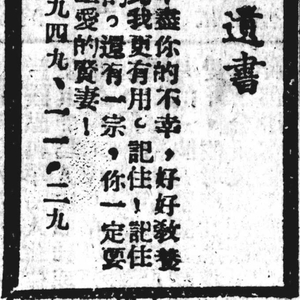 遺書
盡你的不幸，好好敎養
對我更有用。記住！記住
的。還有一宗，你一定要
愛的賢妻！
九四九、一一。二九